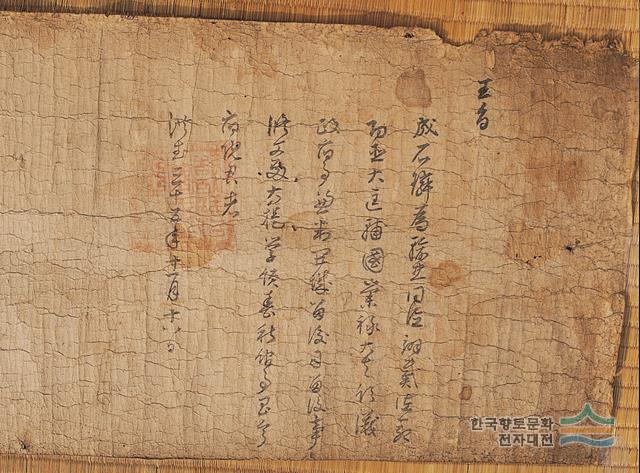 王旨
成石璘爲忠同德翊戴佐命
功臣大匡輔國崇祿大夫領議
政府事兼判開城留後司留後事
修文殿大提學領春秋館事昌寧
府院君者
洪武三十五年十一月十八日
한국향토문화
전자대전